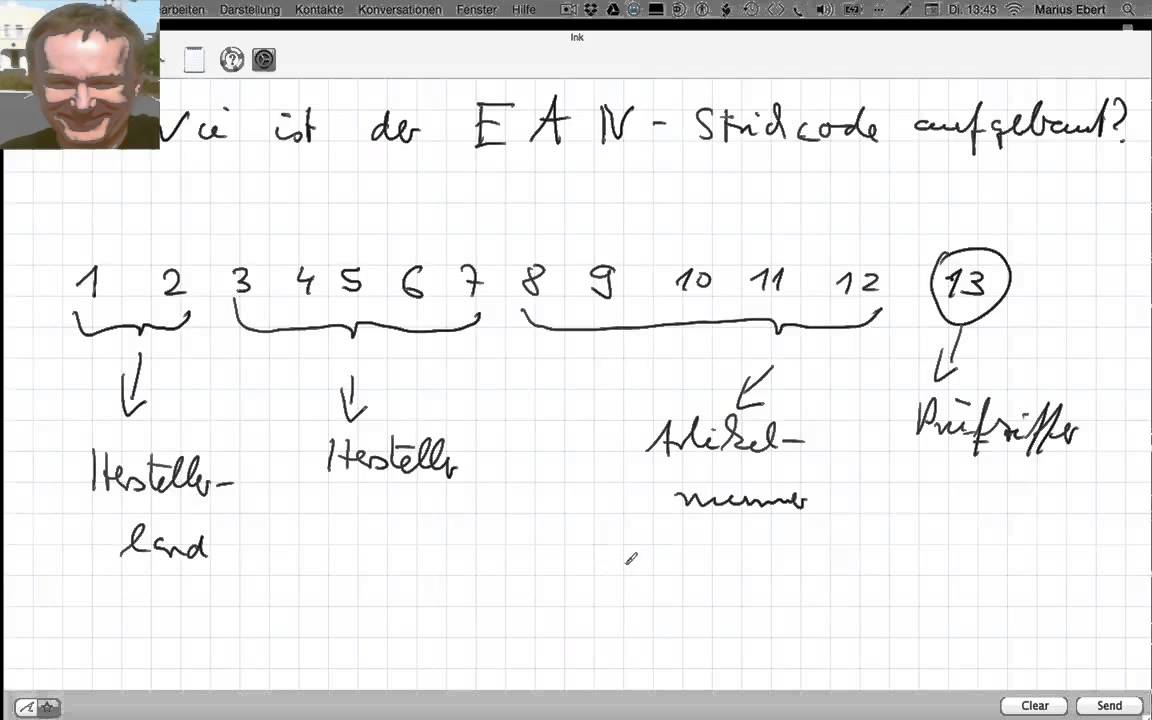 arbeiten Darstellung Kontakte Konversationen Fenster Hilfe Di. 13:43 Marius Ebert
Ink
ie ist der EAN-Strichcode aufgebaut?
1 2 3 4 5 6 7 8 9 10 11 12 13
Hersteller-
land
Hersteller
Artikel-
nummer
Prüfziffer
Clear Send